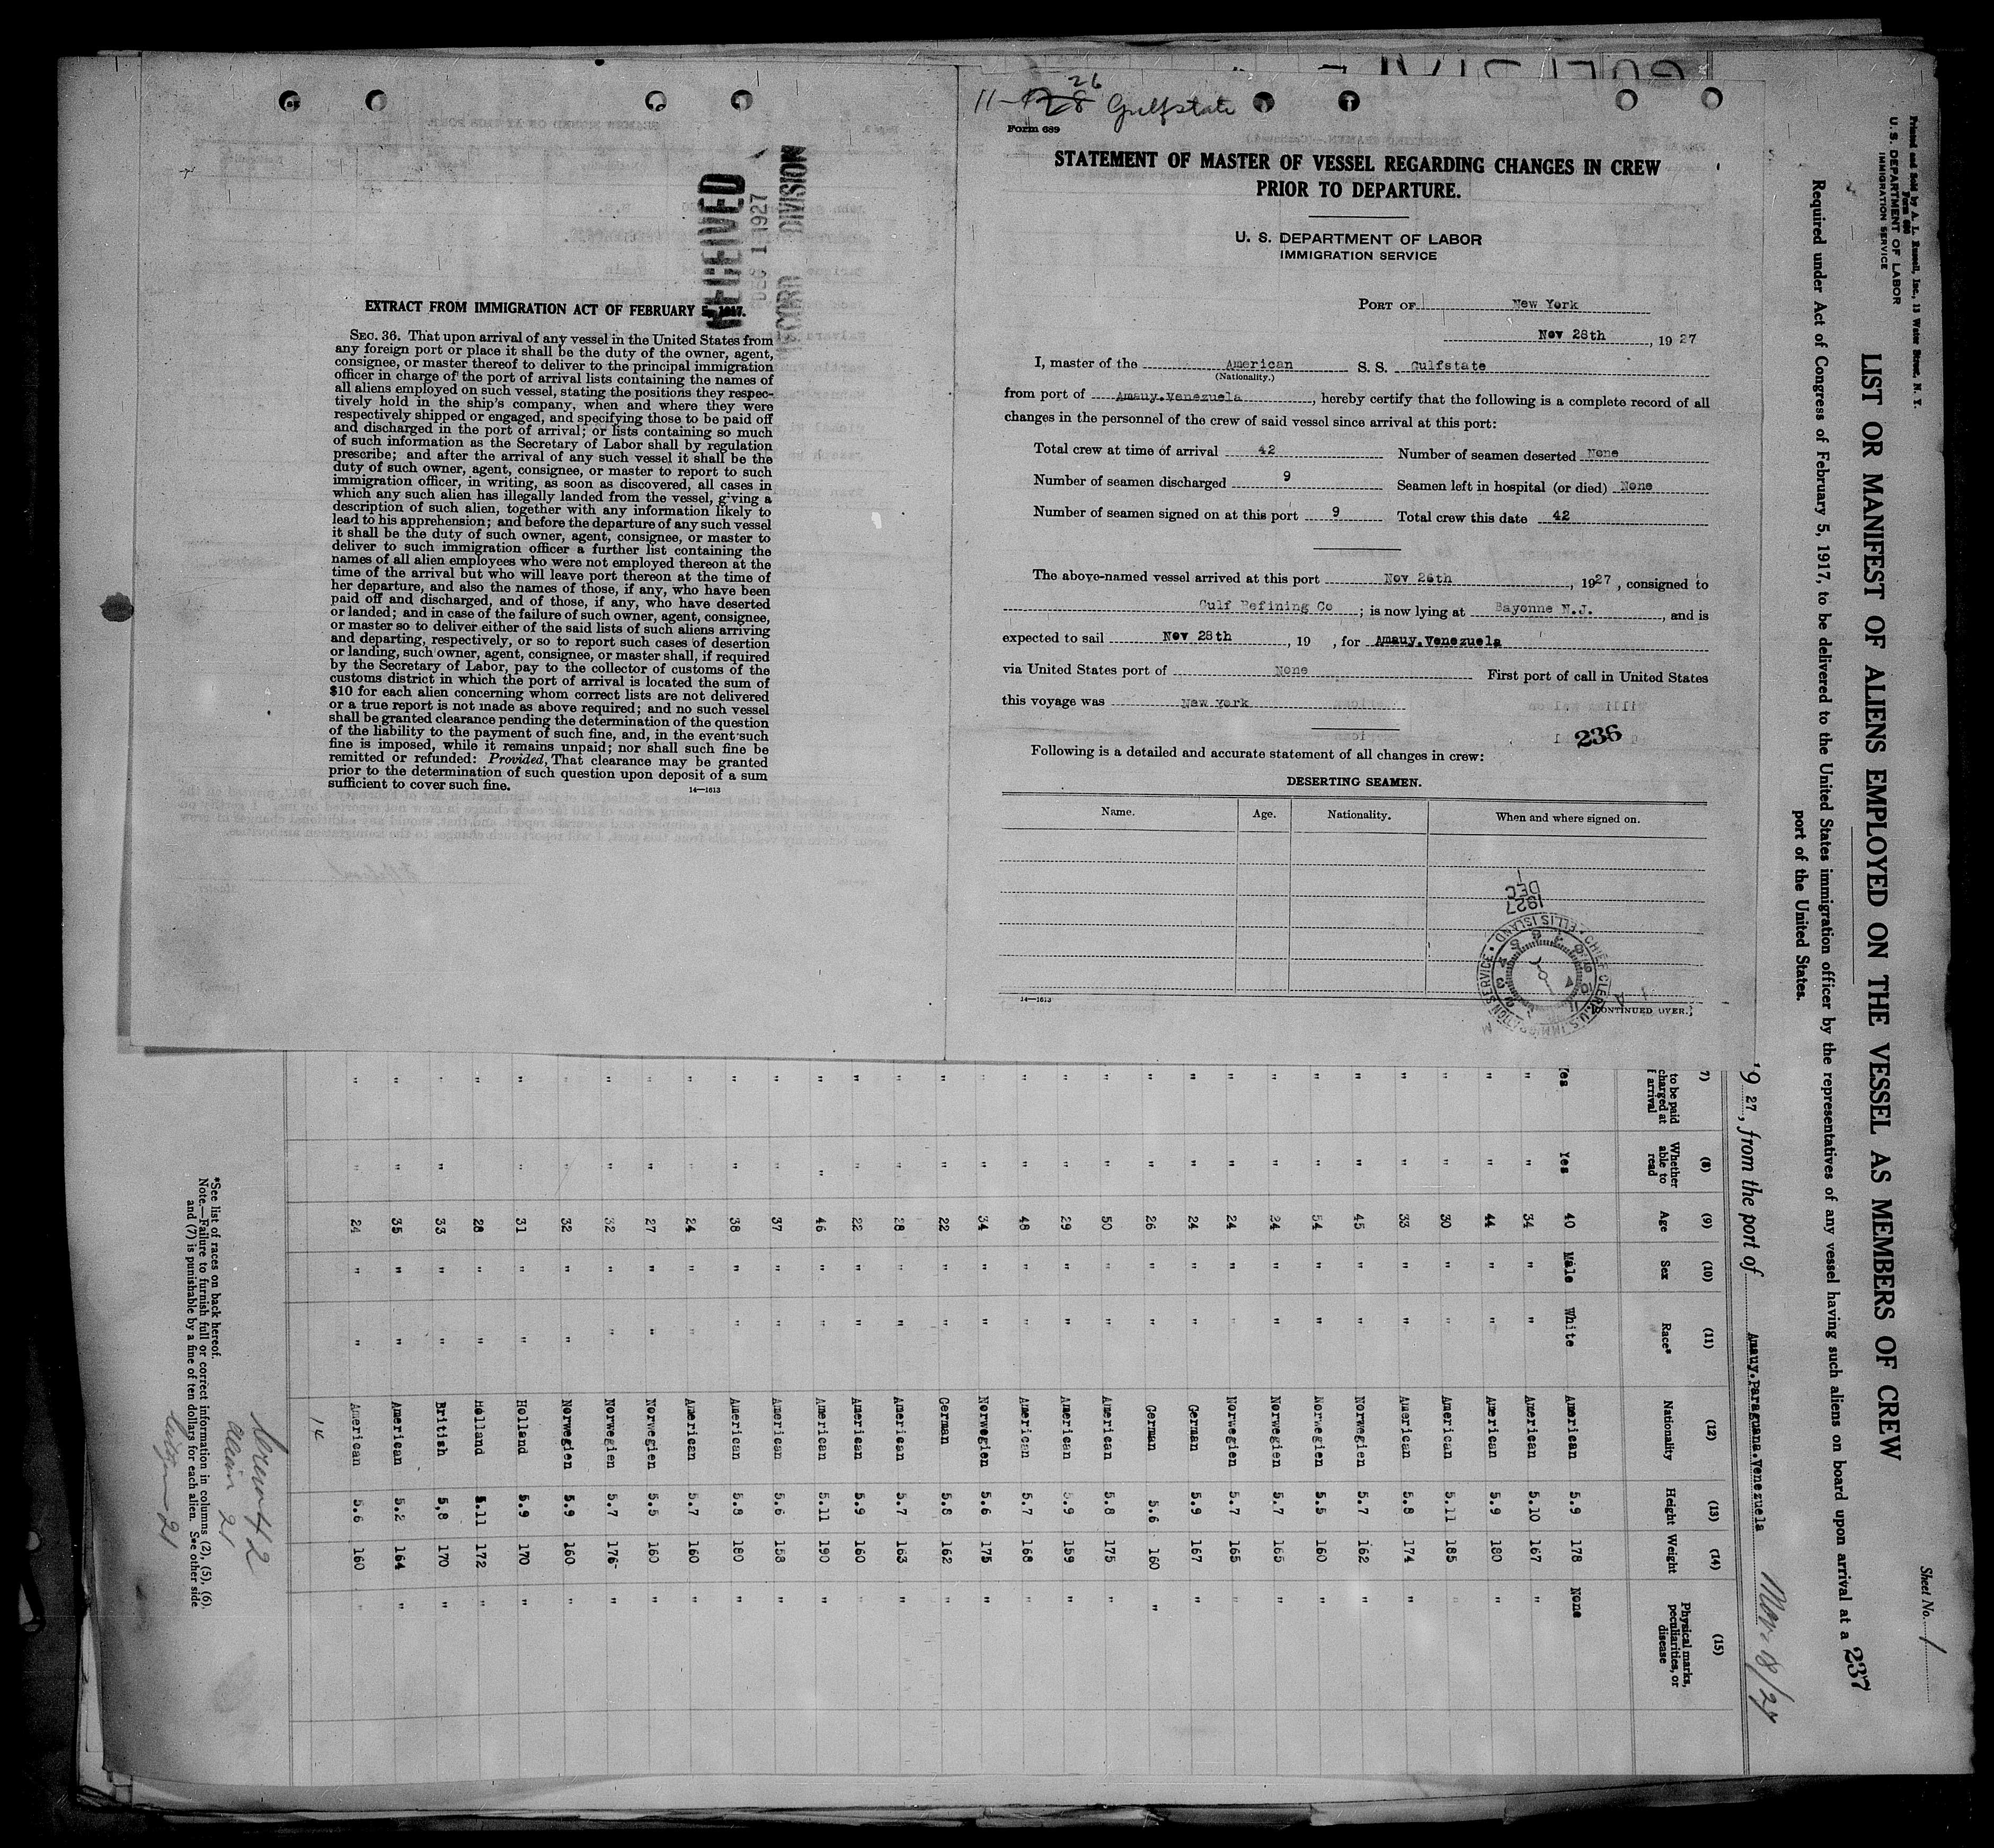 11-28 26 Gulfstate
Form 689
STATEMENT OF MASTER OF VESSEL REGARDING CHANGES IN CREW
PRIOR TO DEPARTURE.
U. S. DEPARTMENT OF LABOR
IMMIGRATION SERVICE
PORT OF New York
Nov 28th, 1927
I, master of the American S. S. Gulfstate
(Nationality.)
from port of Amauy.Venezuela, hereby certify that the following is a complete record of all
changes in the personnel of the crew of said vessel since arrival at this port:
Total crew at time of arrival 42 Number of seamen deserted None
Number of seamen discharged 9 Seamen left in hospital (or died) None
Number of seamen signed on at this port 9 Total crew this date 42
The above-named vessel arrived at this port Nov 26th, 1927, consigned to
Gulf Refining Co; is now lying at Bayonne N.J., and is
expected to sail Nov 28th, 19 , for Amauy.Venezuela
via United States port of None First port of call in United States
this voyage was New York
236
Following is a detailed and accurate statement of all changes in crew:
DESERTING SEAMEN.
Name. Age. Nationality. When and where signed on.
1927
DEC
1
CHIEF CLERK U.S. IMMIGRATION SERVICE ELLIS ISLAND
14—1613
(CONTINUED OVER.)
RECEIVED
DEC 1 1927
RECORD DIVISION
EXTRACT FROM IMMIGRATION ACT OF FEBRUARY 5, 1917.
SEC. 36. That upon arrival of any vessel in the United States from
any foreign port or place it shall be the duty of the owner, agent,
consignee, or master thereof to deliver to the principal immigration
officer in charge of the port of arrival lists containing the names of
all aliens employed on such vessel, stating the positions they respec-
tively hold in the ship's company, when and where they were
respectively shipped or engaged, and specifying those to be paid off
and discharged in the port of arrival; or lists containing so much
of such information as the Secretary of Labor shall by regulation
prescribe; and after the arrival of any such vessel it shall be the
duty of such owner, agent, consignee, or master to report to such
immigration officer, in writing, as soon as discovered, all cases in
which any such alien has illegally landed from the vessel, giving a
description of such alien, together with any information likely to
lead to his apprehension; and before the departure of any such vessel
it shall be the duty of such owner, agent, consignee, or master to
deliver to such immigration officer a further list containing the
names of all alien employees who were not employed thereon at the
time of the arrival but who will leave port thereon at the time of
her departure, and also the names of those, if any, who have been
paid off and discharged, and of those, if any, who have deserted
or landed; and in case of the failure of such owner, agent, consignee,
or master so to deliver either of the said lists of such aliens arriving
and departing, respectively, or so to report such cases of desertion
or landing, such owner, agent, consignee, or master shall, if required
by the Secretary of Labor, pay to the collector of customs of the
customs district in which the port of arrival is located the sum of
$10 for each alien concerning whom correct lists are not delivered
or a true report is not made as above required; and no such vessel
shall be granted clearance pending the determination of the question
of the liability to the payment of such fine, and, in the event such
fine is imposed, while it remains unpaid; nor shall such fine be
remitted or refunded: Provided, That clearance may be granted
prior to the determination of such question upon deposit of a sum
sufficient to cover such fine.
14—1613
Printed and Sold by A. L. Russell, Inc., 13 Water Street, N. Y.
U. S. DEPARTMENT OF LABOR
IMMIGRATION SERVICE
Sheet No. 1
LIST OR MANIFEST OF ALIENS EMPLOYED ON THE VESSEL AS MEMBERS OF CREW
237
Required under Act of Congress of February 5, 1917, to be delivered to the United States immigration officer by the representatives of any vessel having such aliens on board upon arrival at a
port of the United States.
1927, from the port of Amauy.Paraguana.Venezuela Nov 18/27
(7) (8) (9) (10) (11) (12) (13) (14) (15)
to be paid charged at arrival Whether able to read Age Sex Race* Nationality Height Weight Physical marks, peculiarities, or disease
Yes Yes 40 Male White American 5.9 178 None
" " 34 " " American 5.10 167 "
" " 44 " " American 5.9 180 "
" " 30 " " American 5.11 185 "
" " 33 " " American 5.8 174 "
" " 45 " " Norwegien 5.7 162 "
" " 54 " " Norwegien 5.5 160 "
" " 24 " " Norwegien 5.7 165 "
" " 24 " " Norwegien 5.7 165 "
" " 24 " " German 5.9 167 "
" " 26 " " German 5.6 160 "
" " 50 " " American 5.8 175 "
" " 29 " " American 5.9 159 "
" " 48 " " American 5.7 168 "
" " 34 " " Norwegien 5.6 175 "
" " 22 " " German 5.8 162 "
" " 28 " " American 5.7 163 "
" " 22 " " American 5.9 160 "
" " 46 " " American 5.11 190 "
" " 37 " " American 5.6 158 "
" " 38 " " American 5.8 180 "
" " 24 " " American 5.7 160 "
" " 27 " " Norwegien 5.5 160 "
" " 32 " " Norwegien 5.7 176 "
" " 32 " " Norwegien 5.9 160 "
" " 31 " " Holland 5.9 170 "
" " 28 " " Holland 5.11 172 "
" " 33 " " British 5,8 170 "
" " 35 " " American 5.2 164 "
" " 24 " " American 5.6 160 "
14
*See list of races on back hereof.
Note.—Failure to furnish full or correct information in columns (2), (5), (6),
and (7) is punishable by a fine of ten dollars for each alien. See other side
Crew 42
Alien 21
21